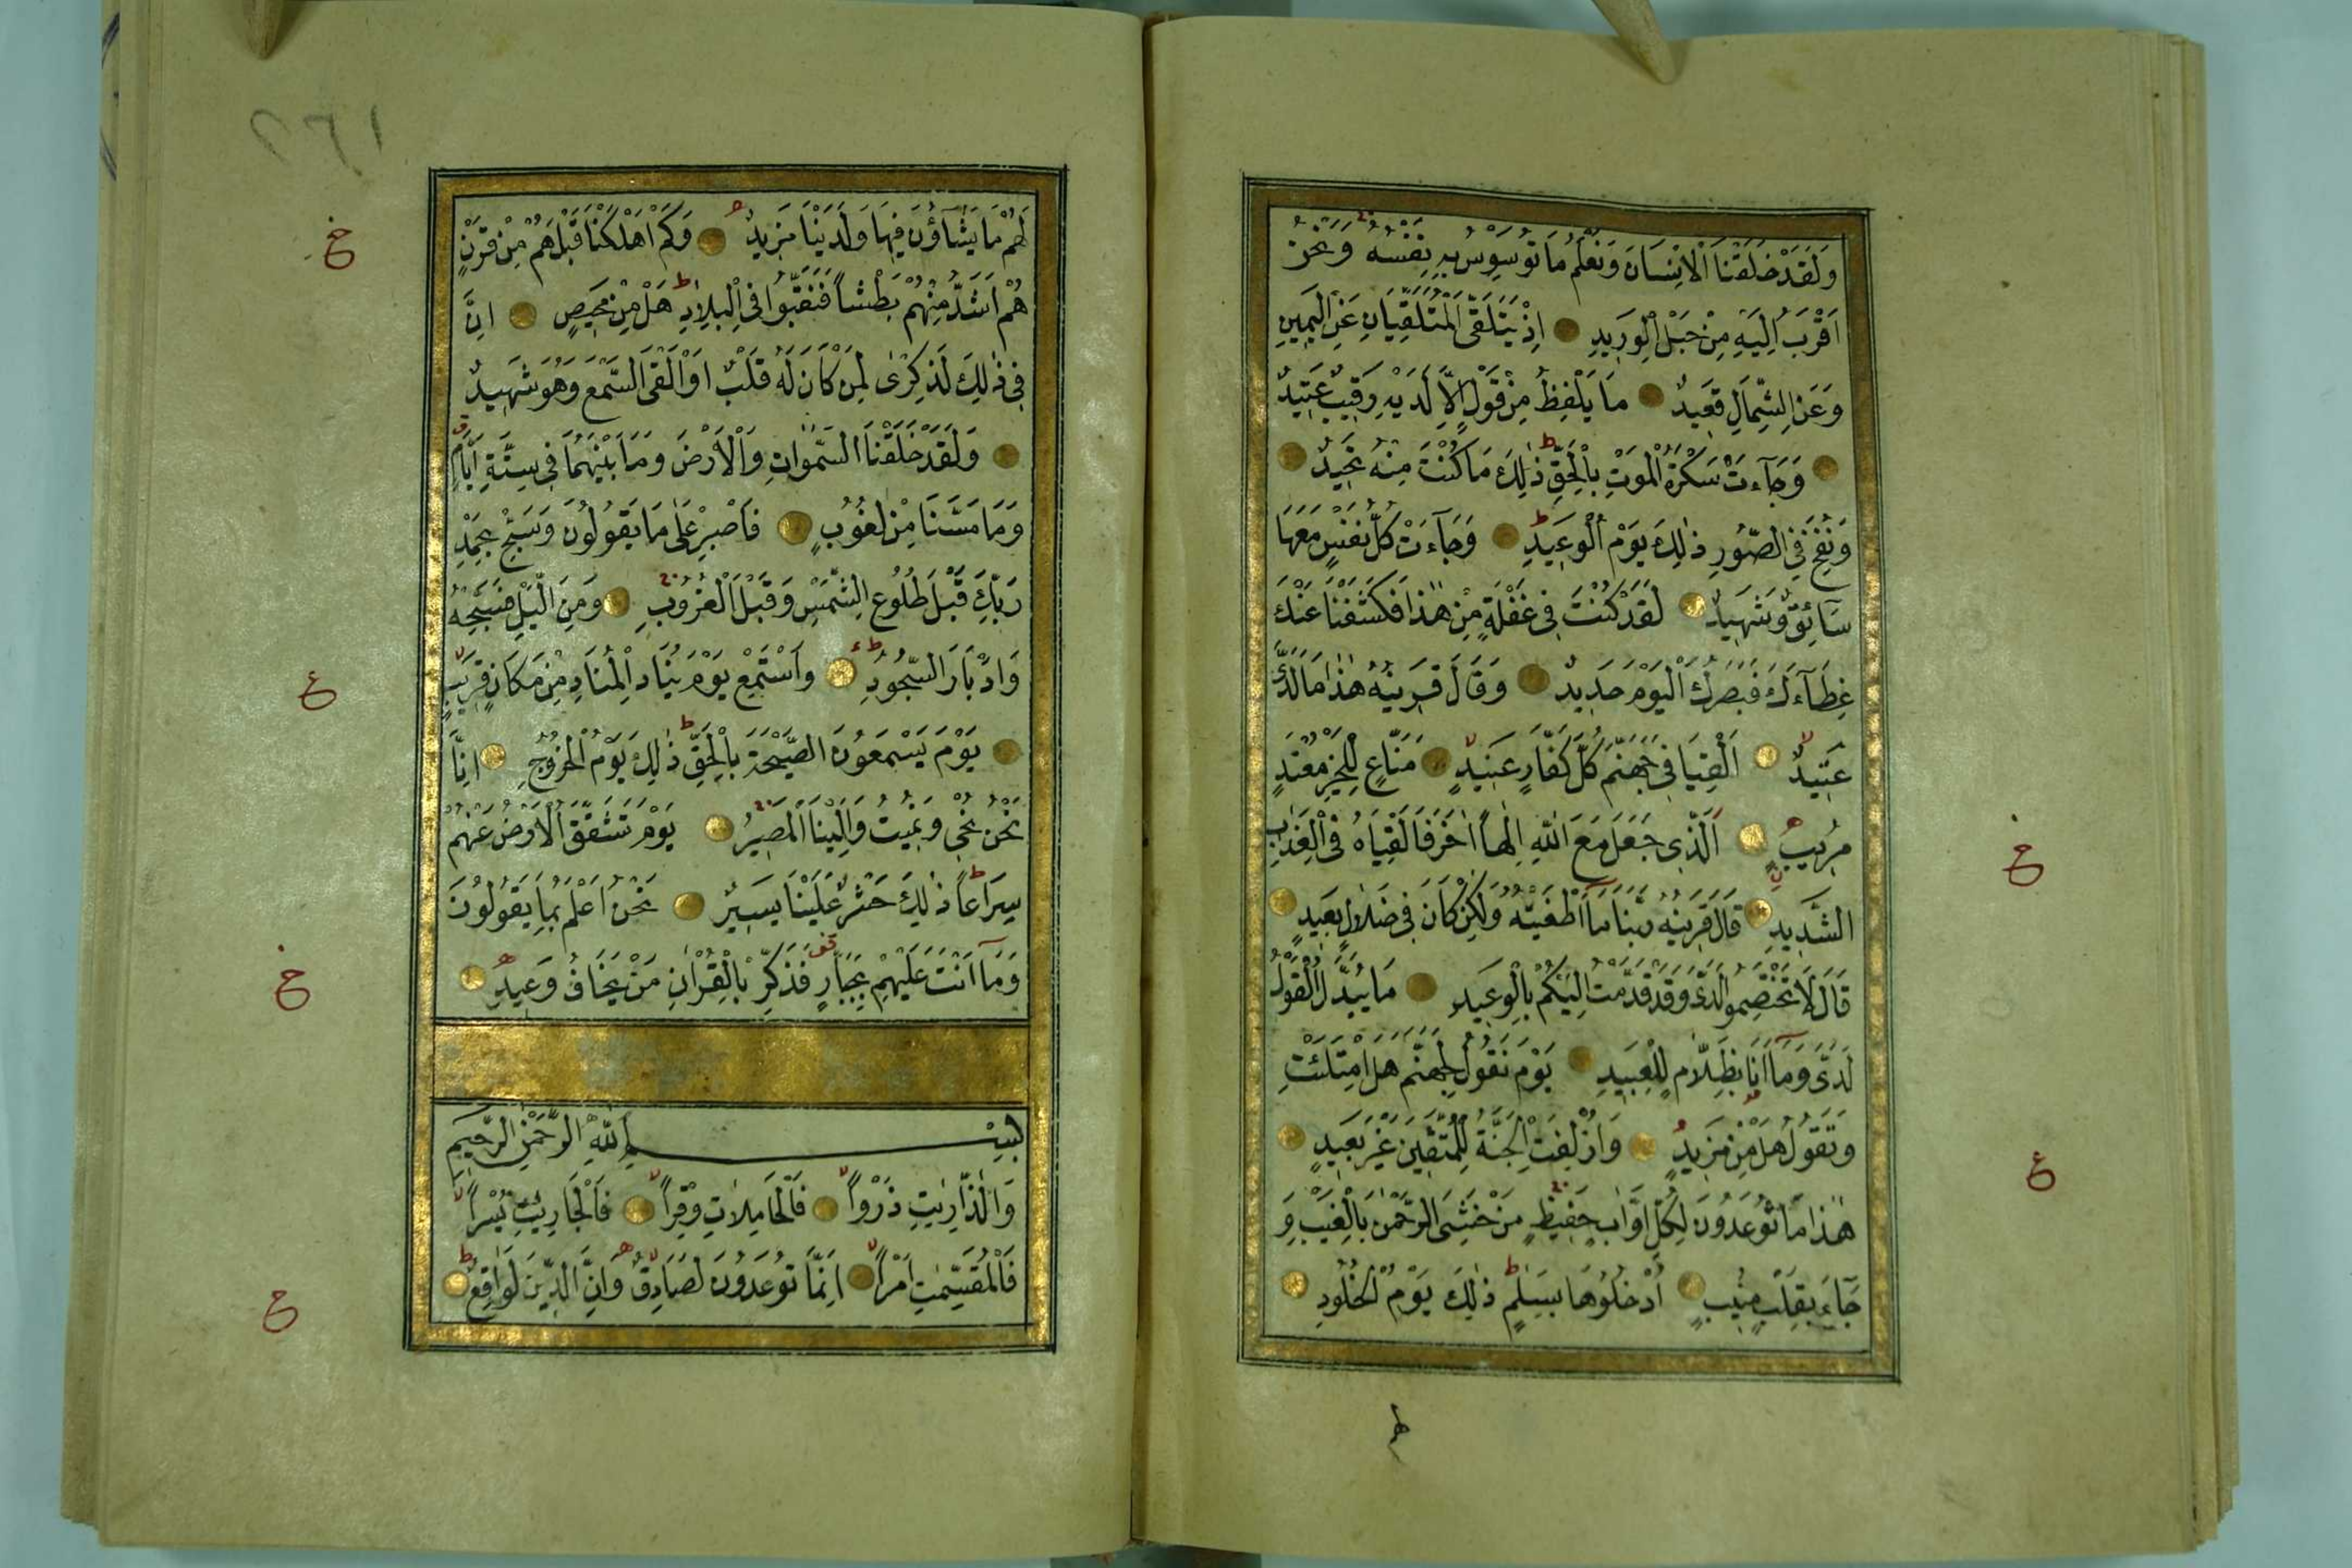 وَلَقَدْ خَلَقْنَا الْاِنْسَانَ وَنَعْلَمُ مَا تُوَسْوِسُ بِهِ نَفْسُهُ وَنَحْنُ
اَقْرَبُ اِلَيْهِ مِنْ حَبْلِ الْوَرِيدِ اِذْ يَتَلَقَّى الْمُتَلَقِّيَانِ عَنِ الْيَمِينِ
وَعَنِ الشِّمَالِ قَعِيدٌ مَا يَلْفِظُ مِنْ قَوْلٍ اِلَّا لَدَيْهِ رَقِيبٌ عَتِيدٌ
وَجَاءَتْ سَكْرَةُ الْمَوْتِ بِالْحَقِّ ذٰلِكَ مَا كُنْتَ مِنْهُ تَحِيدُ
وَنُفِخَ فِي الصُّورِ ذٰلِكَ يَوْمُ الْوَعِيدِ وَجَاءَتْ كُلُّ نَفْسٍ مَعَهَا
سَائِقٌ وَشَهِيدٌ لَقَدْ كُنْتَ فِي غَفْلَةٍ مِنْ هٰذَا فَكَشَفْنَا عَنْكَ
غِطَاءَكَ فَبَصَرُكَ الْيَوْمَ حَدِيدٌ وَقَالَ قَرِينُهُ هٰذَا مَا لَدَيَّ
عَتِيدٌ اَلْقِيَا فِي جَهَنَّمَ كُلَّ كَفَّارٍ عَنِيدٍ مَنَّاعٍ لِلْخَيْرِ مُعْتَدٍ
مُرِيبٍ اَلَّذِي جَعَلَ مَعَ اللّٰهِ اِلٰهًا اٰخَرَ فَاَلْقِيَاهُ فِي الْعَذَابِ
الشَّدِيدِ قَالَ قَرِينُهُ رَبَّنَا مَا اَطْغَيْتُهُ وَلٰكِنْ كَانَ فِي ضَلَالٍ بَعِيدٍ
قَالَ لَا تَخْتَصِمُوا لَدَيَّ وَقَدْ قَدَّمْتُ اِلَيْكُمْ بِالْوَعِيدِ مَا يُبَدَّلُ الْقَوْلُ
لَدَيَّ وَمَا اَنَا بِظَلَّامٍ لِلْعَبِيدِ يَوْمَ نَقُولُ لِجَهَنَّمَ هَلِ امْتَلَئْتِ
وَتَقُولُ هَلْ مِنْ مَزِيدٍ وَاُزْلِفَتِ الْجَنَّةُ لِلْمُتَّقِينَ غَيْرَ بَعِيدٍ
هٰذَا مَا تُوعَدُونَ لِكُلِّ اَوَّابٍ حَفِيظٍ مَنْ خَشِيَ الرَّحْمٰنَ بِالْغَيْبِ وَ
جَاءَ بِقَلْبٍ مُنِيبٍ اُدْخُلُوهَا بِسَلٰمٍ ذٰلِكَ يَوْمُ الْخُلُودِ
لهم
٢٦١
لَهُمْ مَا يَشَاؤُنَ فِيهَا وَلَدَيْنَا مَزِيدٌ وَكَمْ اَهْلَكْنَا قَبْلَهُمْ مِنْ قَرْنٍ
هُمْ اَشَدُّ مِنْهُمْ بَطْشًا فَنَقَّبُوا فِي الْبِلَادِ هَلْ مِنْ مَحِيصٍ اِنَّ
فِي ذٰلِكَ لَذِكْرٰى لِمَنْ كَانَ لَهُ قَلْبٌ اَوْ اَلْقَى السَّمْعَ وَهُوَ شَهِيدٌ
وَلَقَدْ خَلَقْنَا السَّمٰوَاتِ وَالْاَرْضَ وَمَا بَيْنَهُمَا فِي سِتَّةِ اَيَّامٍ
وَمَا مَسَّنَا مِنْ لُغُوبٍ فَاصْبِرْ عَلٰى مَا يَقُولُونَ وَسَبِّحْ بِحَمْدِ
رَبِّكَ قَبْلَ طُلُوعِ الشَّمْسِ وَقَبْلَ الْغُرُوبِ وَمِنَ الَّيْلِ فَسَبِّحْهُ
وَاَدْبَارَ السُّجُودِ وَاسْتَمِعْ يَوْمَ يُنَادِ الْمُنَادِ مِنْ مَكَانٍ قَرِيبٍ
يَوْمَ يَسْمَعُونَ الصَّيْحَةَ بِالْحَقِّ ذٰلِكَ يَوْمُ الْخُرُوجِ اِنَّا
نَحْنُ نُحْيِ وَنُمِيتُ وَاِلَيْنَا الْمَصِيرُ يَوْمَ تَشَقَّقُ الْاَرْضُ عَنْهُمْ
سِرَاعًا ذٰلِكَ حَشْرٌ عَلَيْنَا يَسِيرٌ نَحْنُ اَعْلَمُ بِمَا يَقُولُونَ
وَمَا اَنْتَ عَلَيْهِمْ بِجَبَّارٍ فَذَكِّرْ بِالْقُرْاٰنِ مَنْ يَخَافُ وَعِيدِ
بِسْمِ اللّٰهِ الرَّحْمٰنِ الرَّحِيمِ
وَالذَّارِيٰتِ ذَرْوًا فَالْحَامِلَاتِ وِقْرًا فَالْجَارِيٰتِ يُسْرًا
فَالْمُقَسِّمٰتِ اَمْرًا اِنَّمَا تُوعَدُونَ لَصَادِقٌ وَاِنَّ الدِّينَ لَوَاقِعٌ